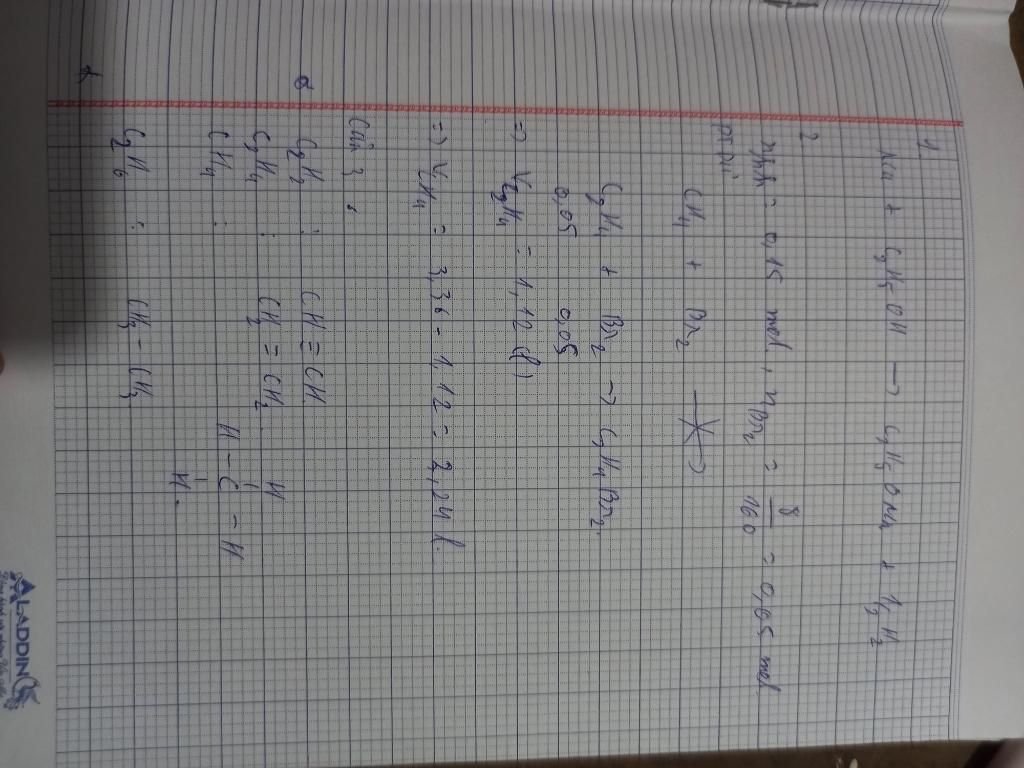 1
Na + C2H5OH → C2H5ONa + 1/2 H2
2
nhh = 0,15 mol, nBr2 = 8/160 = 0,05 mol
CH4 + Br2
C2H4 + Br2 → C2H4Br2.
0,05 0,05
=) VC2H4 = 1,12 (l)
=) VCH4 = 3,36 - 1,12 = 2,24 l.
Câu 3.
C2H2 : CH ≡ CH
C2H4 : CH2 = CH2
H
CH4 : H - C - H
H.
C2H6 : CH3 - CH3
ALADDIN